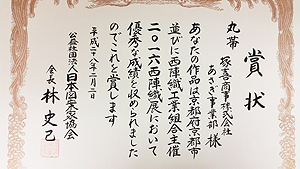 賞状
丸帯
塚喜商事株式会社
事業部 様
あなたの作品は京都府京都市
並びに西陣織工業組合主催
二〇一六西陣織展において
優秀な成績を収められました
のでこれを賞します
平成二十八年二月二日
公益社団法人日本図案家協会
会長 林史己